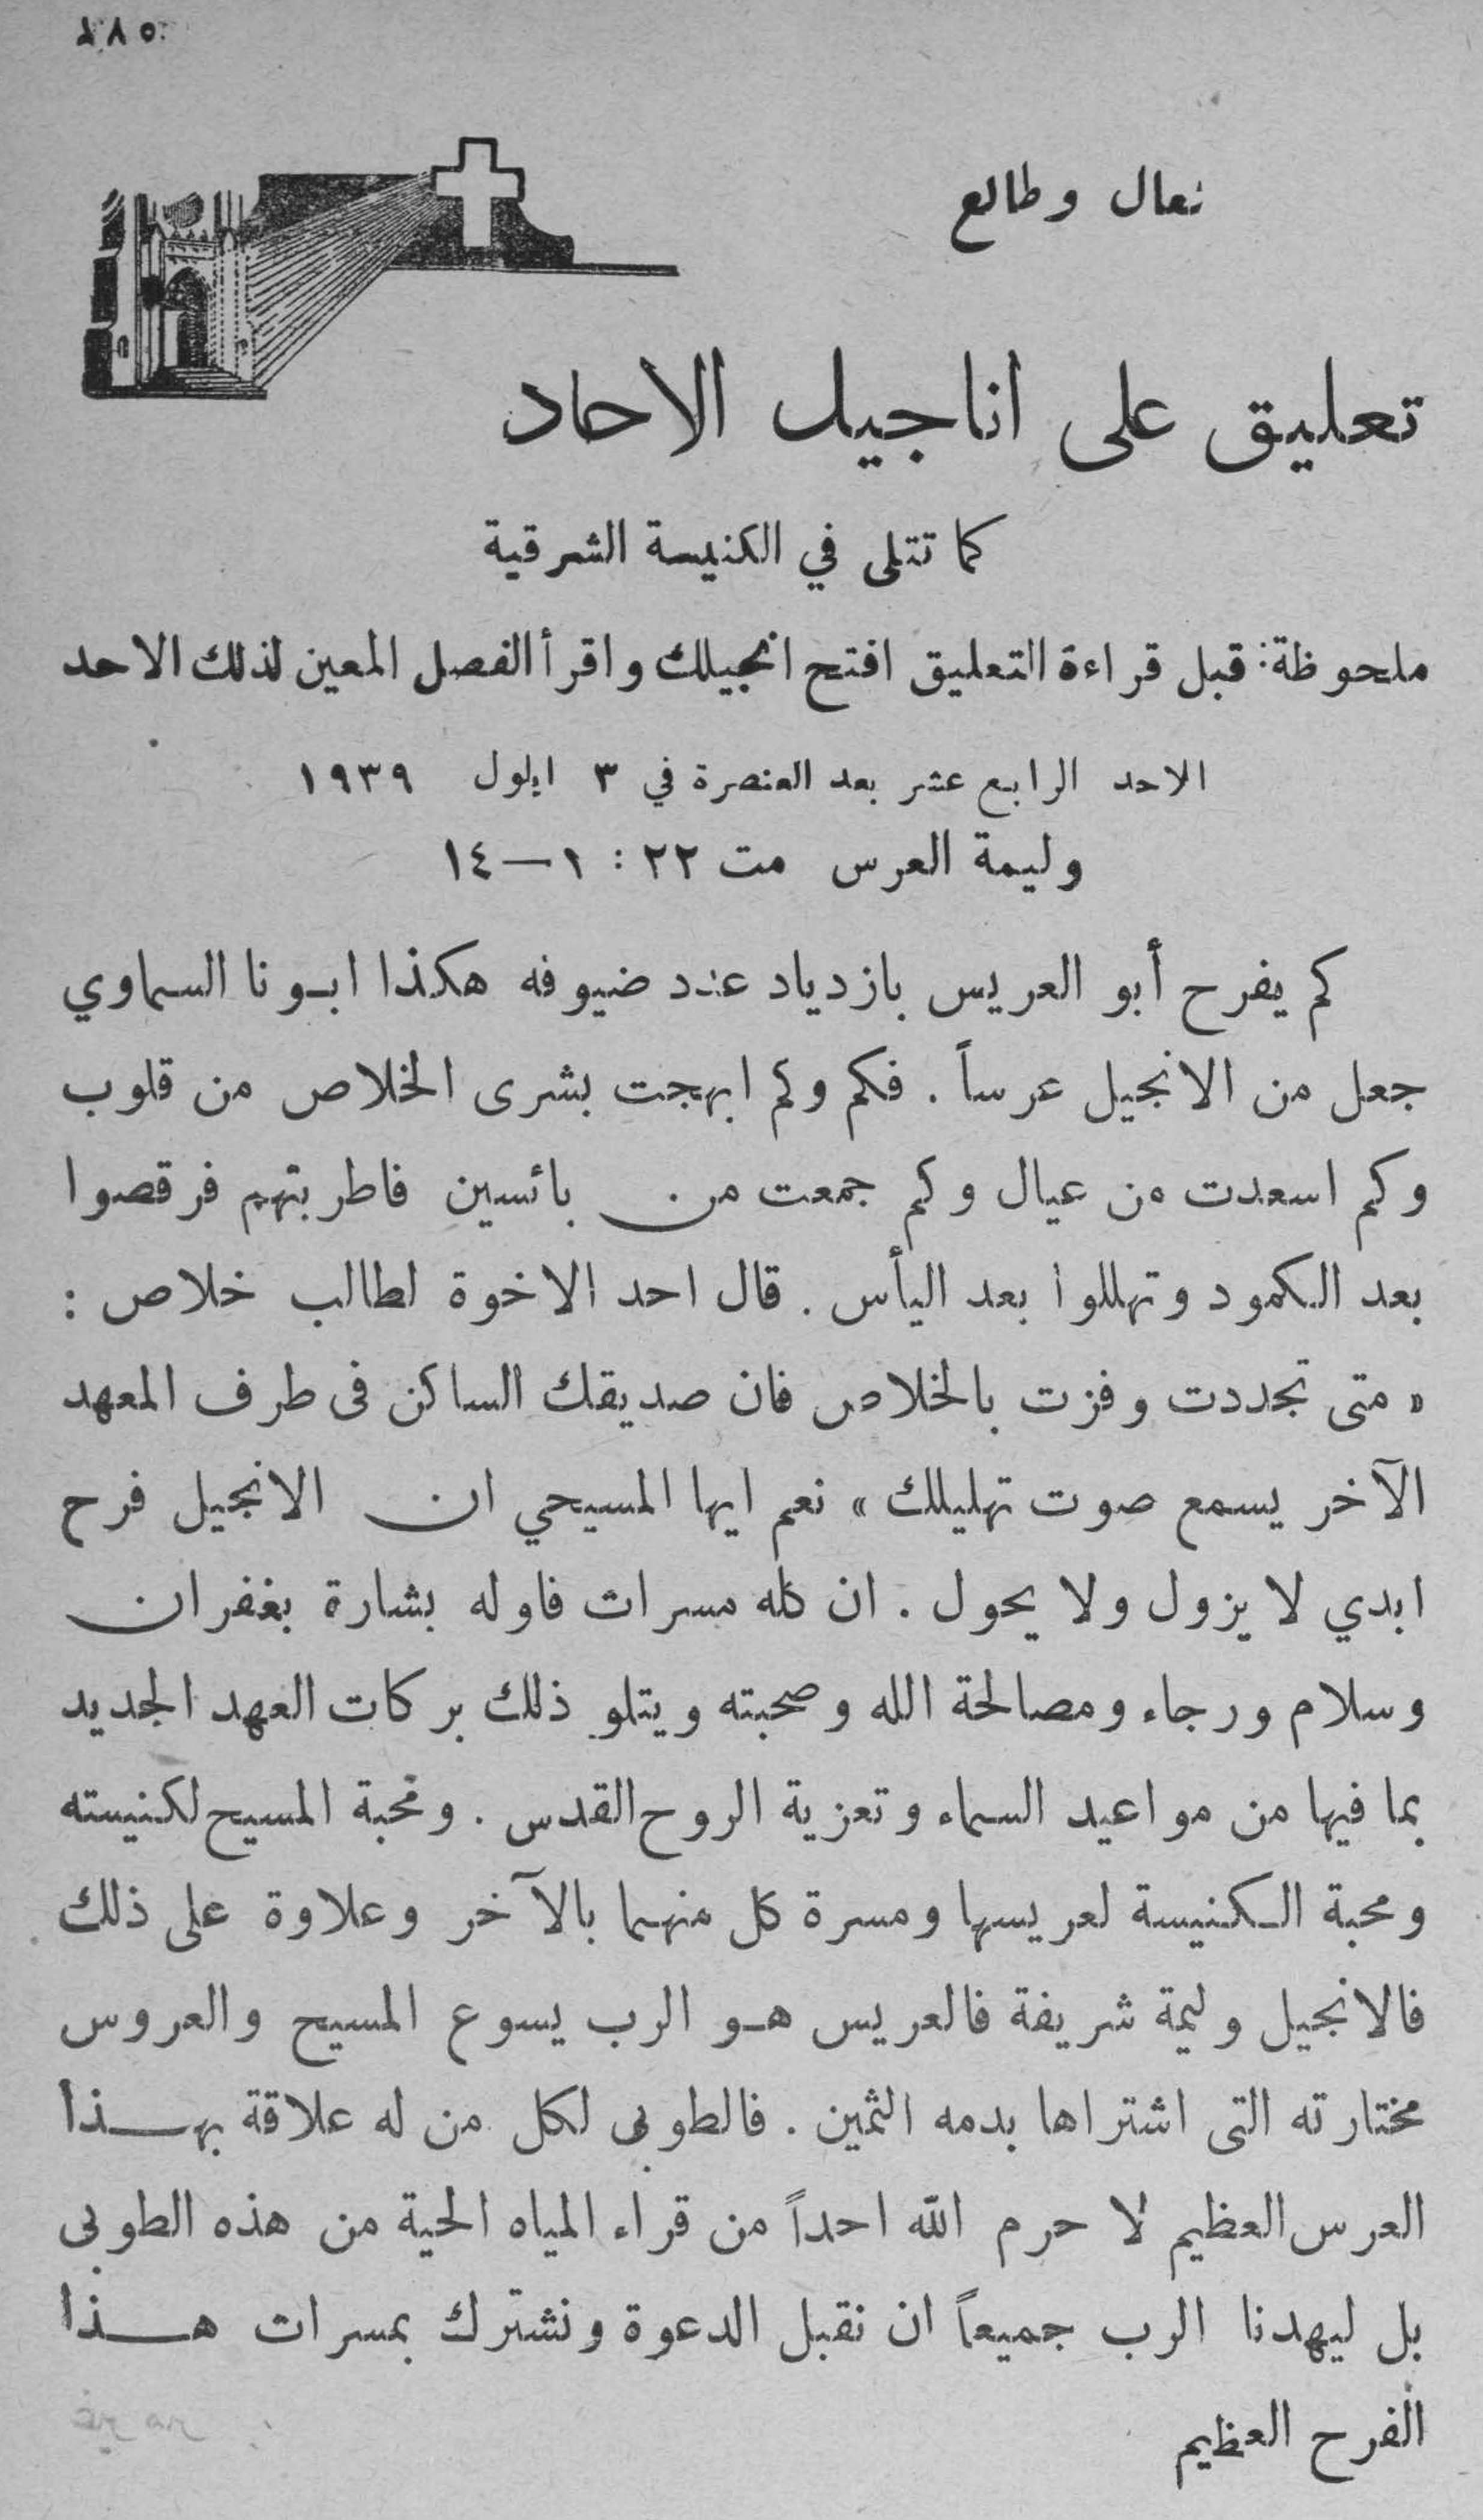 تعال وطالع
تعليق على اناجيل الاحاد
كما تتلى في الكنيسة الشرقية
ملحوظة: قبل قراءة التعليق افتح انجيلك واقرأ الفصل المعين لذلك الاحد
الاحد الرابع عشر بعد العنصرة في ٣ ايلول ١٩٣٩
وليمة العرس مت ٢٢ : ١—١٤
كم يفرح أبو العريس بازدياد عدد ضيوفه هكذا ابونا السماوي
جعل من الانجيل عرساً . فكم وكم ابهجت بشرى الخلاص من قلوب
وكم اسعدت من عيال وكم جمعت من بائسين فاطربتهم فرقصوا
بعد الكمود وتهللوا بعد اليأس . قال احد الاخوة لطالب خلاص :
« متى تجددت وفزت بالخلاص فان صديقك الساكن فى طرف المعهد
الآخر يسمع صوت تهليلك » نعم ايها المسيحي ان الانجيل فرح
ابدي لا يزول ولا يحول . ان كله مسرات فاوله بشارة بغفران
وسلام ورجاء ومصالحة الله وصحبته ويتلو ذلك بركات العهد الجديد
بما فيها من مواعيد السماء وتعزية الروح القدس . ومحبة المسيح لكنيسته
ومحبة الكنيسة لعريسها ومسرة كل منهما بالآخر وعلاوة على ذلك
فالانجيل وليمة شريفة فالعريس هو الرب يسوع المسيح والعروس
مختارته التى اشتراها بدمه الثمين . فالطوبى لكل من له علاقة بهذا
العرس العظيم لا حرم الله احداً من قراء المياه الحية من هذه الطوبى
بل ليهدنا الرب جميعاً ان نقبل الدعوة ونشترك بمسرات هذا
الفرح العظيم